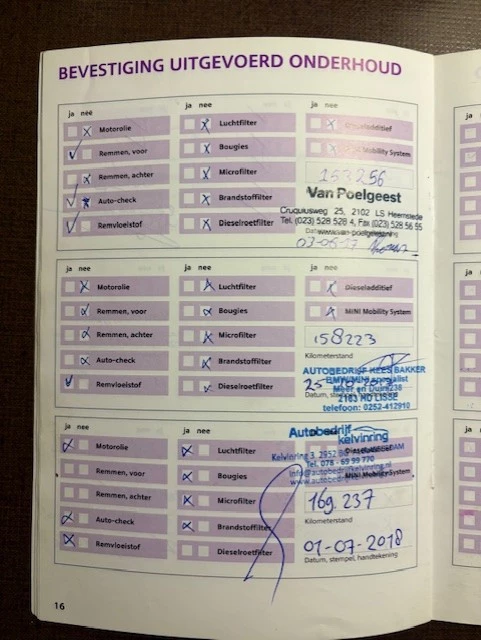 BEVESTIGING UITGEVOERD ONDERHOUD
ja nee
ja nee
ja nee
Motorolie
Luchtfilter
Dieseladditief
Remmen, voor
Bougies
Mobility System
Remmen, achter
Microfilter
153256
Auto-check
Brandstoffilter
Van Poelgeest
Cruquiusweg 25, 2102 LS Heemstede
Remvloeistof
Dieselroetfilter
Tel. (023) 528 528 4, Fax (023) 528 56 55
ja nee
ja nee
ja nee
Motorolie
Luchtfilter
Dieseladditief
Remmen, voor
Bougies
MINI Mobility System
Remmen, achter
Microfilter
158223
Kilometerstand
Auto-check
Brandstoffilter
AUTOBEDRIJF KEES BAKKER
Remvloeistof
Dieselroetfilter
2163 HD LISSE
Datum,
telefoon: 0252-412910
ja nee
ja nee
Autobedrijf
kelvinring
Motorolie
Luchtfilter
Kelvinring 3, 2952
Tel. 078 - 69 99 770
Remmen, voor
Bougies
MINI Mobility System
Remmen, achter
Microfilter
169.237
Kilometerstand
Auto-check
Brandstoffilter
Remvloeistof
Dieselroetfilter
01-07-2018
Datum, stempel, handtekening
16